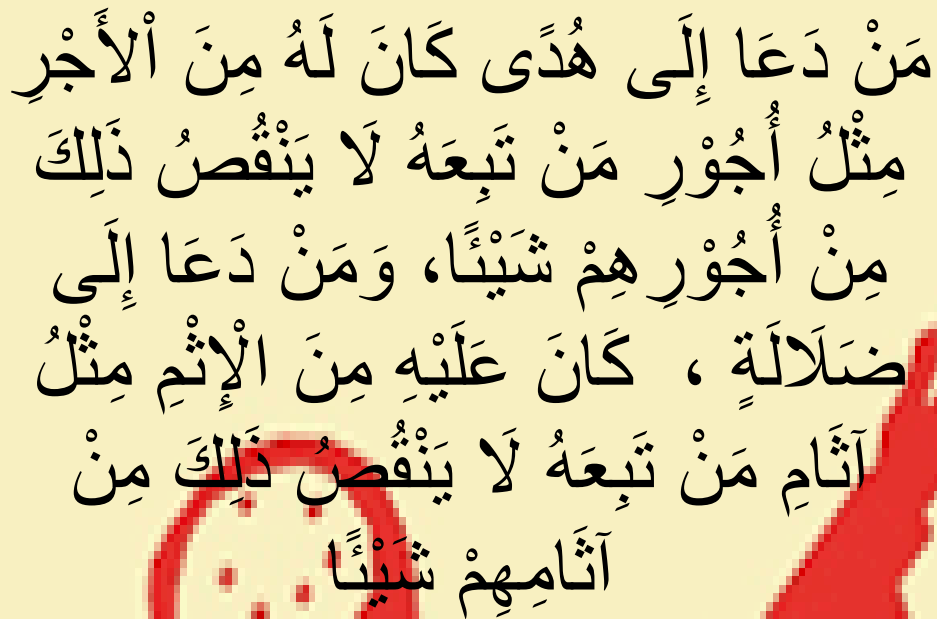 مَنْ دَعَا إِلَى هُدًى كَانَ لَهُ مِنَ اْلأَجْرِ
مِثْلُ أُجُوْرِ مَنْ تَبِعَهُ لَا يَنْقُصُ ذَلِكَ
مِنْ أُجُوْرِهِمْ شَيْئًا، وَمَنْ دَعَا إِلَى
ضَلَالَةٍ ، كَانَ عَلَيْهِ مِنَ الْإِثْمِ مِثْلُ
آثَامِ مَنْ تَبِعَهُ لَا يَنْقُصُ ذَلِكَ مِنْ
آثَامِهِمْ شَيْئًا